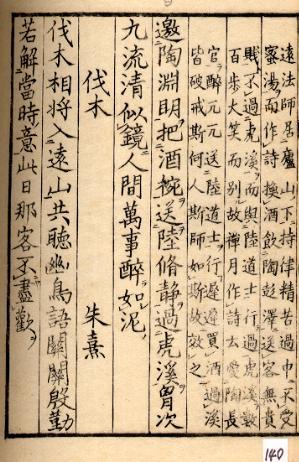 遠法師居廬山下持律精苦過中不受
蜜湯而作詩換酒飲陶彭澤送客無貴
賤不過虎溪而與陸道士行過虎溪數
百歩大笑而別故禅月作詩云愛陶長
官醉兀兀送陸道士行遲遲買酒過溪
皆破戒斯何人斯師如斯故效之
邀陶淵明把酒椀送陸脩静過虎溪胷次
九流清似鏡人間萬事醉如泥
伐木 朱熹
伐木相将入遠山共聽幽鳥語關關殷勤
若解當時意此日那客不盡歡
140